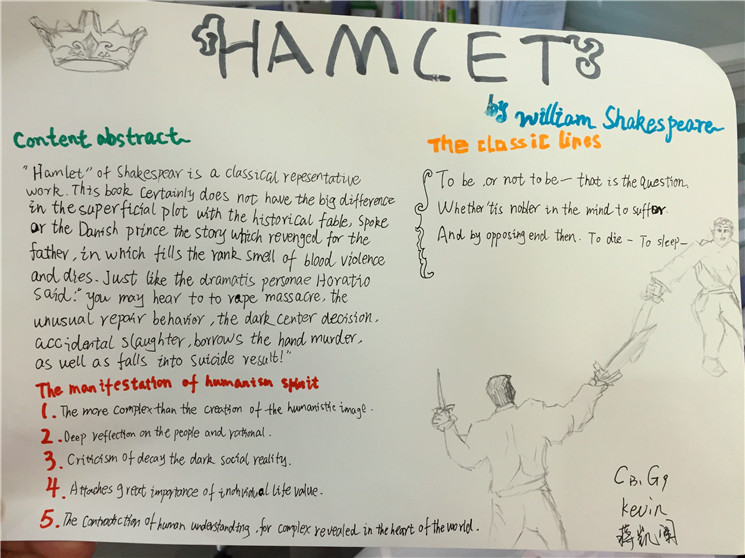 HAMLET
by william Shakespeare
Content abstract
"Hamlet" of Shakespear is a classical repesentative
work. This book certainly does not have the big difference
in the superficial plot with the historical fable, spoke
or the Danish prince the story which revenged for the
father, in which fills the rank smell of blood violence
and dies. Just like the dramatis personae Horatio
said: "you may hear to to rape massacre, the
unusual repair behavior, the dark center decision,
accidental slaughter, borrows the hand murder,
as well as falls into suicide result!"
The manifestation of humanism spirit
1. The more complex than the creation of the humanistic image.
2. Deep reflection on the people and rational.
3. Criticism of decay the dark social reality.
4. Attaches great importance of individual life value.
5. The contradiction of human understanding, for complex revealed in the heart of the world.
The classic lines
To be, or not to be — that is the question,
Whether 'tis nobler in the mind to suffer
And by opposing end then. To die — To sleep —
CB1G9
Kevin
蒋凯